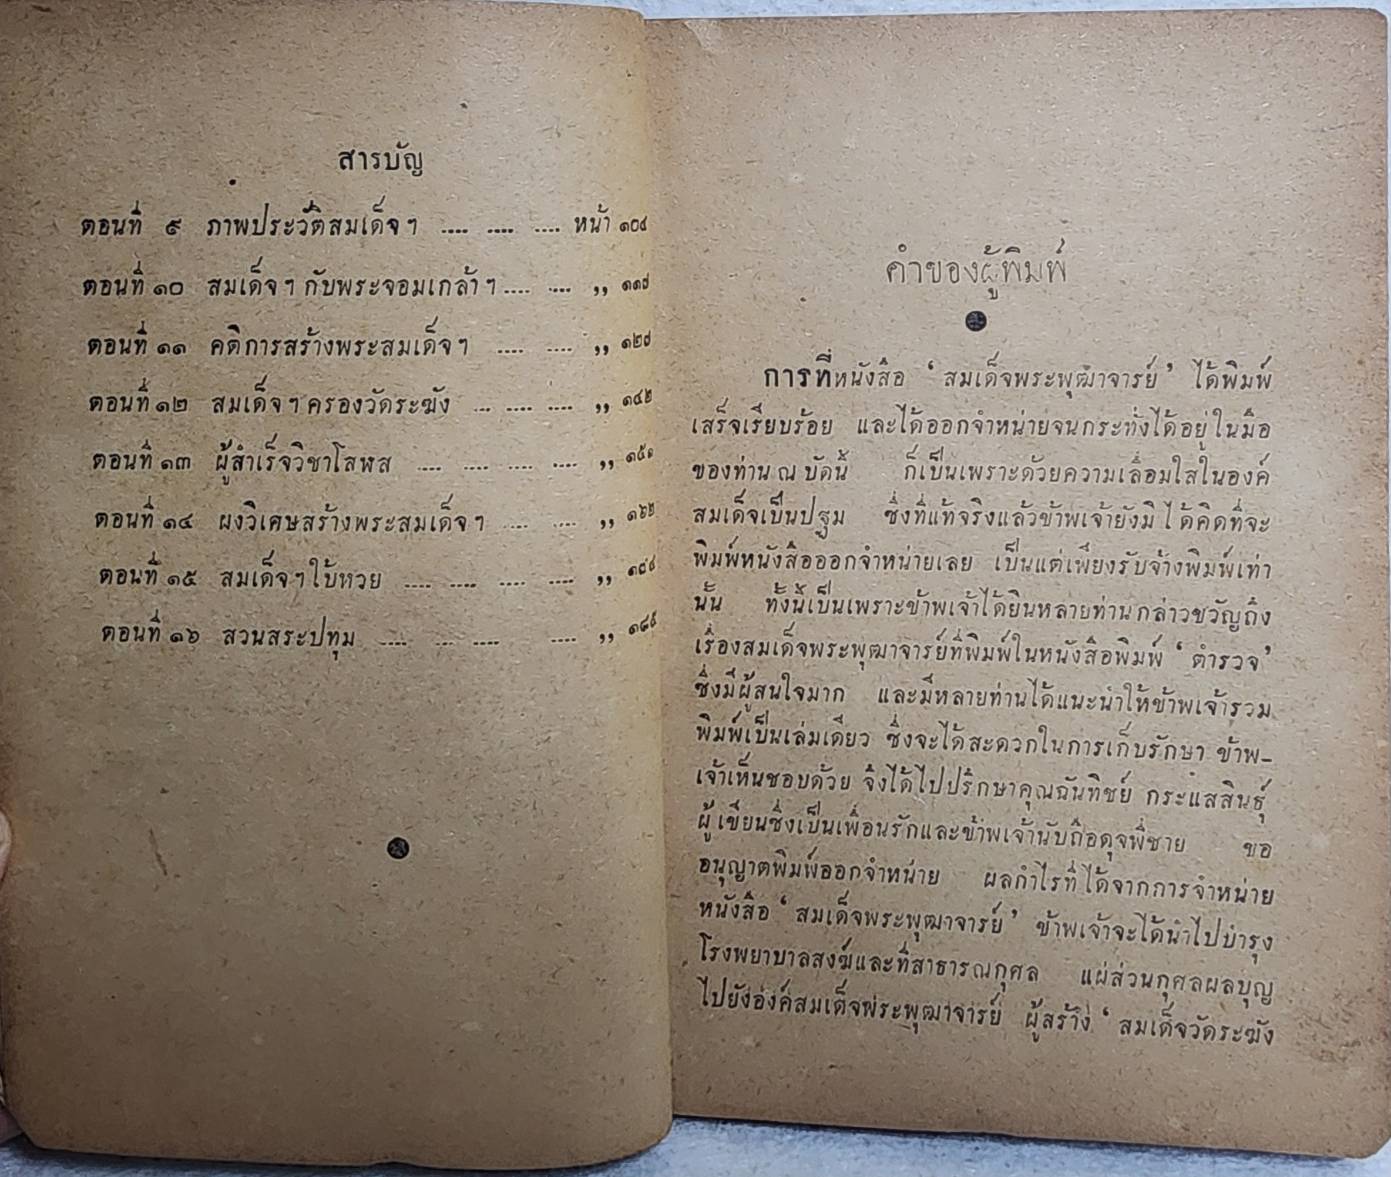 สารบัญ
ตอนที่ ๙ ภาพประวัติสมเด็จฯ .... .... .... หน้า ๑๐๔
ตอนที่ ๑๐ สมเด็จฯ กับพระจอมเกล้าฯ .... .... ,,
ตอนที่ ๑๑ คติการสร้างพระสมเด็จฯ .... .... ,, ๑๒๗
ตอนที่ ๑๒ สมเด็จฯ ครองวัดระฆัง ... .... .... ,, ๑๔๒
ตอนที่ ๑๓ ผู้สำเร็จวิชาโสฬส .... .... .... .... ,, ๑๕๑
ตอนที่ ๑๔ ผงวิเศษสร้างพระสมเด็จฯ .... .... ,, ๑๖๒
ตอนที่ ๑๕ สมเด็จฯ ใบ้หวย .... .... .... .... ,,
ตอนที่ ๑๖ สวนสระปทุม .... ... .... .... ,, ๑๘๙
คำของผู้พิมพ์
การที่หนังสือ ‘ สมเด็จพระพุฒาจารย์ ’ ได้พิมพ์
เสร็จเรียบร้อย และได้ออกจำหน่ายจนกระทั่งได้อยู่ในมือ
ของท่าน ณ บัดนี้ ก็เป็นเพราะด้วยความเลื่อมใสในองค์
สมเด็จเป็นปฐม ซึ่งที่แท้จริงแล้วข้าพเจ้ายังมิได้คิดที่จะ
พิมพ์หนังสือออกจำหน่ายเลย เป็นแต่เพียงรับจ้างพิมพ์เท่า
นั้น ทั้งนี้เป็นเพราะข้าพเจ้าได้ยินหลายท่านกล่าวขวัญถึง
เรื่องสมเด็จพระพุฒาจารย์ที่พิมพ์ในหนังสือพิมพ์ ‘ ตำรวจ ’
ซึ่งมีผู้สนใจมาก และมีหลายท่านได้แนะนำให้ข้าพเจ้ารวม
พิมพ์เป็นเล่มเดียว ซึ่งจะได้สะดวกในการเก็บรักษา ข้าพ-
เจ้าเห็นชอบด้วย จึงได้ไปปรึกษาคุณฉันทิชย์ กระแสสินธุ์
ผู้เขียนซึ่งเป็นเพื่อนรักและข้าพเจ้านับถือดุจพี่ชาย ขอ
อนุญาตพิมพ์ออกจำหน่าย ผลกำไรที่ได้จากการจำหน่าย
หนังสือ ‘ สมเด็จพระพุฒาจารย์ ’ ข้าพเจ้าจะได้นำไปบำรุง
โรงพยาบาลสงฆ์และที่สาธารณกุศล แผ่ส่วนกุศลผลบุญ
ไปยังองค์สมเด็จพระพุฒาจารย์ ผู้สร้าง ‘ สมเด็จวัดระฆัง